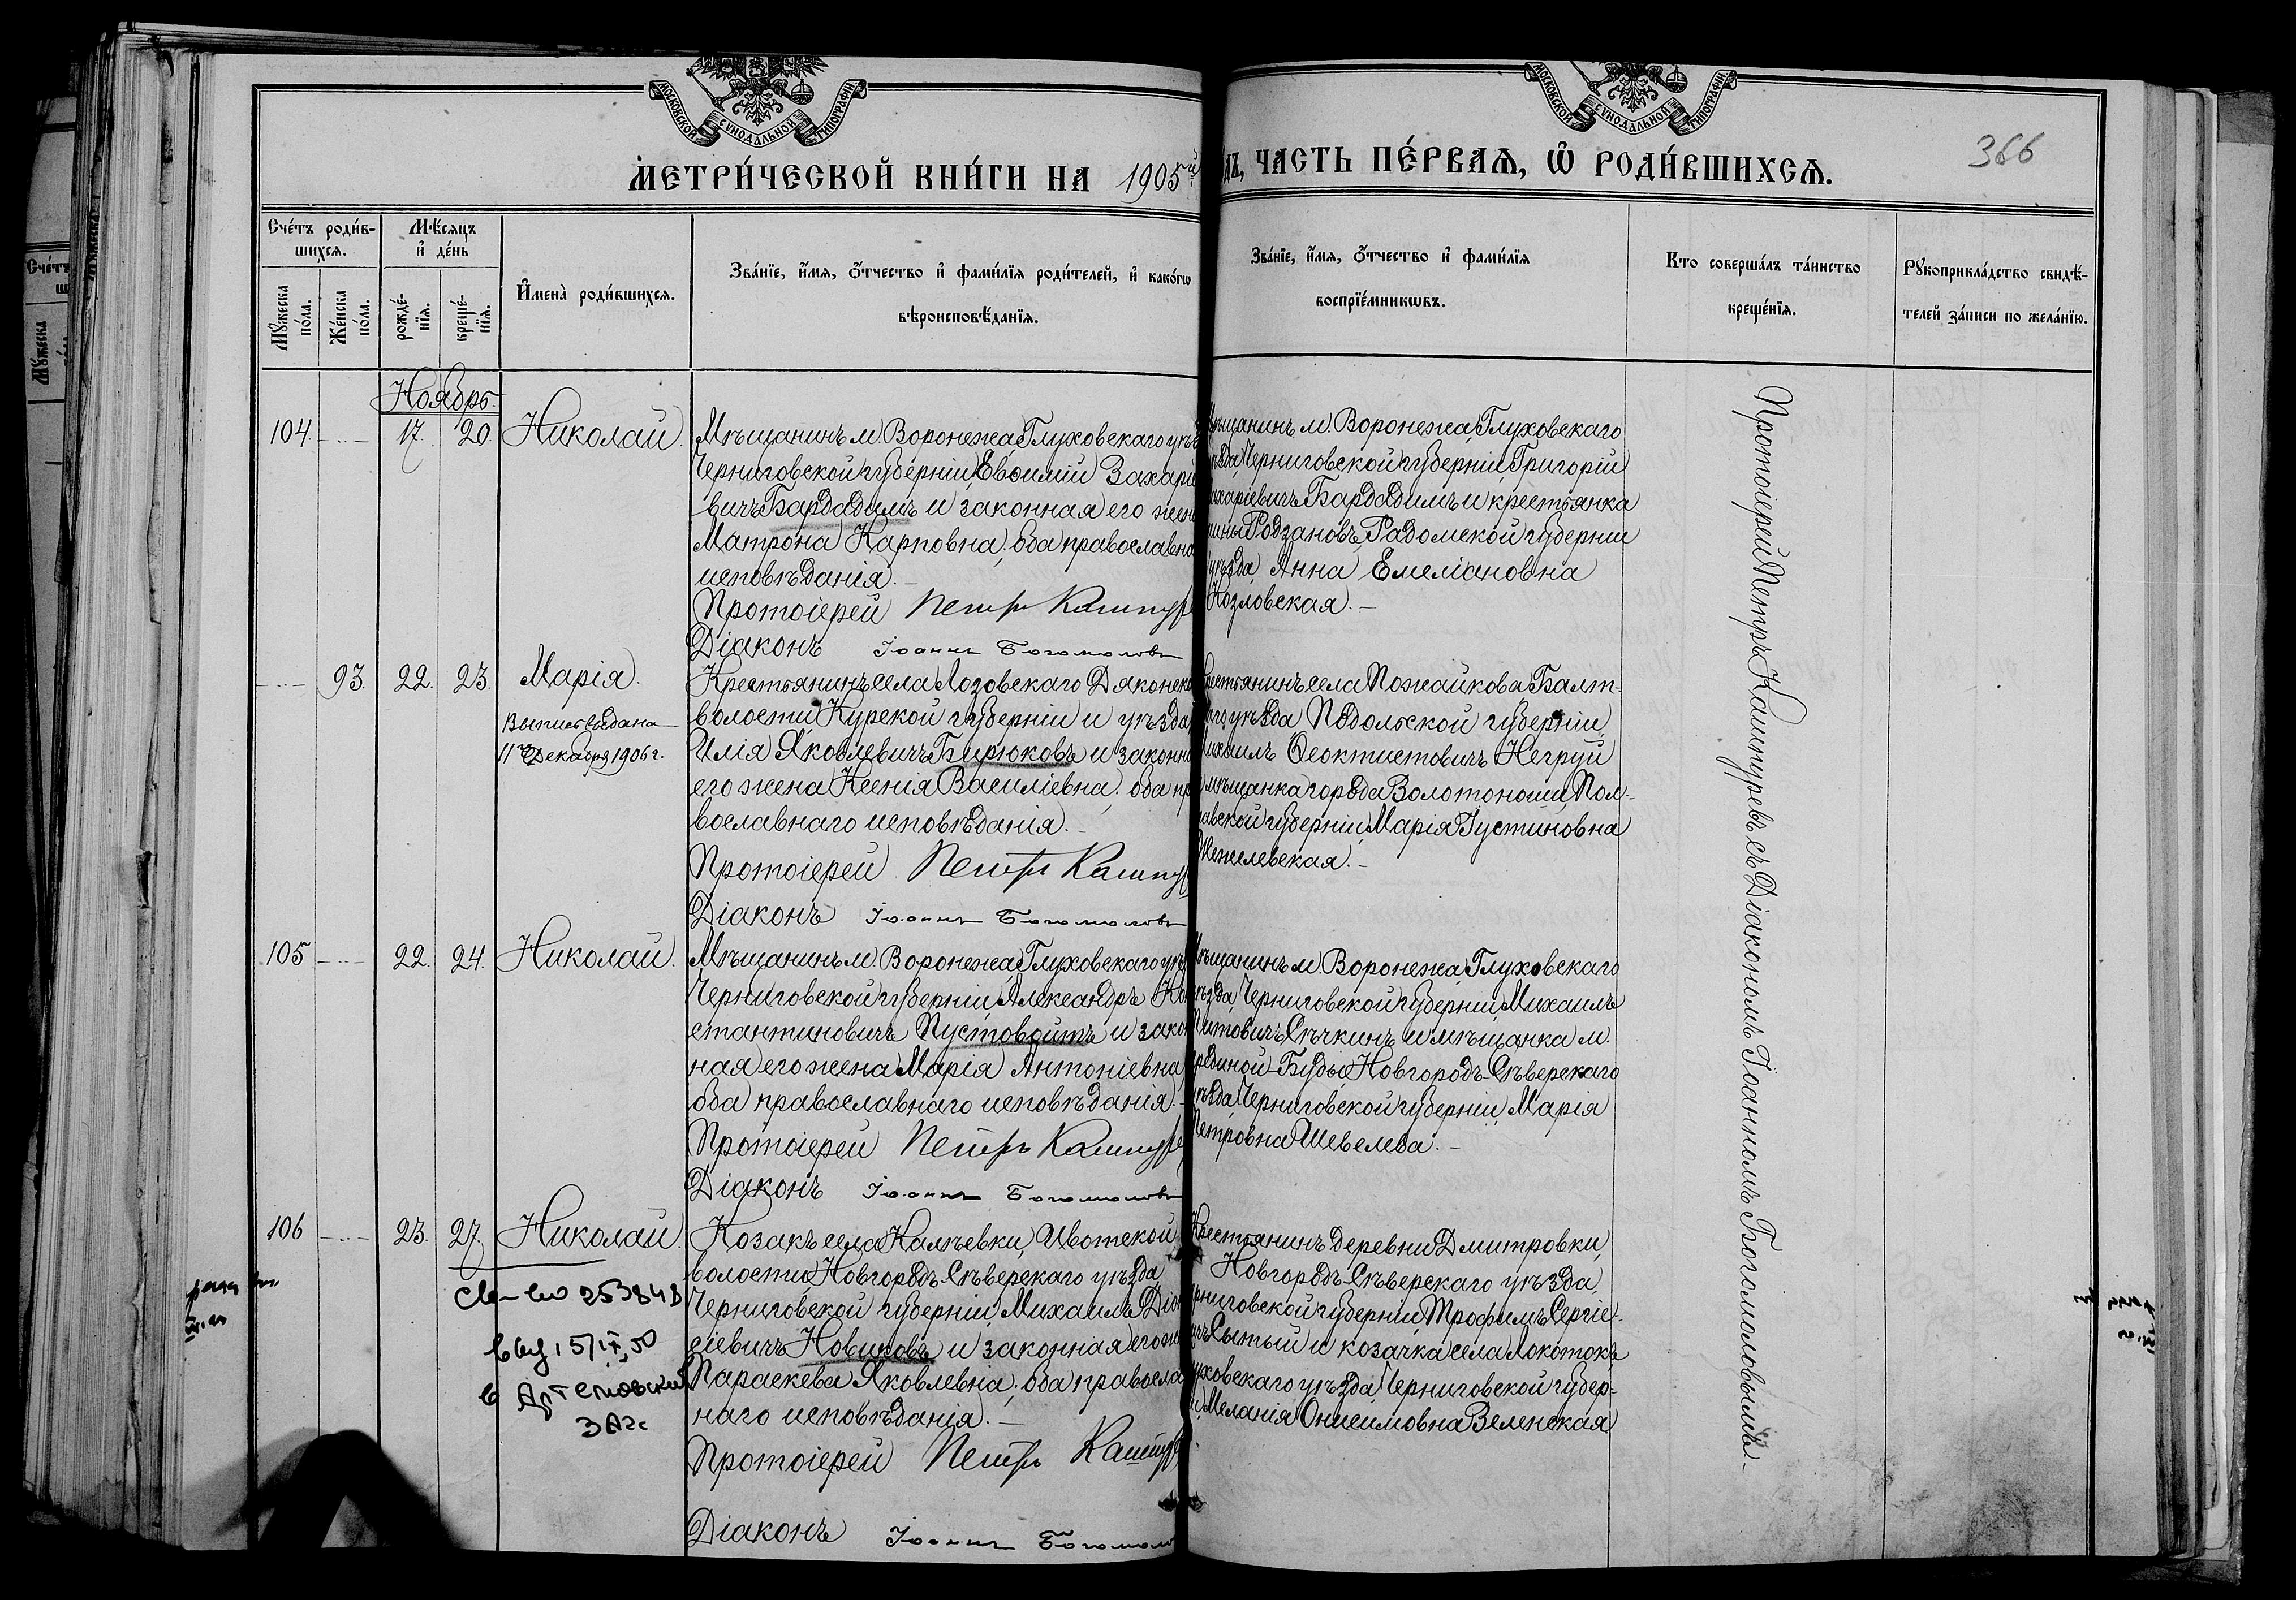 МОСКОВСКОЙ СѴНОДАЛЬНОЙ ТИПОГРАФІИ
МОСКОВСКОЙ СѴНОДАЛЬНОЙ ТИПОГРАФІИ
МЕТРИ́ЧЕСКОЙ КНИ́ГИ НА 1905й
ДЪ, ЧАСТЬ ПЕ́РВАЯ, Ѡ РОДИ́ВШИХСЯ.
366
Сче́тъ роди́в-
шихся.
Мꙋжеска по́ла.
Же́нска по́ла.
Мѣ́сяцъ
и҆ де́нь
рожде́-
нїя.
креще́-
нїя.
И҆мена̀ роди́вшихся.
Зва́нїе, и҆́мя, ѻ҆́тчество и҆ фами́лїя роди́телей, и҆ како́гѡ
вѣроисповѣ́данїя.
Зва́нїе, и҆́мя, ѻ҆́тчество и҆ фами́лїя
воспрїе́мникѡвъ.
Кто соверша́лъ та́инство
креще́нїя.
Рꙋкоприкла́дство свидѣ́-
телей за́писи по жела́нїю.
Ноябрь.
104. 17. 20. Николай.
Мѣщанинъ м. Воронежа, Глуховскаго уѣз
Черниговской губерніи, Евѳимій Захаріе
вичъ Бардадимъ и законная его жена
Матрона Карповна; оба православна
исповѣданія.
Протоіерей Петръ Кашпуре
Діаконъ Іоаннъ Богомоловъ
ѣщанинъ м. Воронежа, Глуховскаго
ѣзда, Черниговской губерніи, Григорій
харіевичъ Бардадимъ и крестьянка
мины Родзановъ, Радомской губерніи
уѣзда, Анна Емеліановна
Козловская.
93. 22. 23. Марія.
Выпись выдана
11го Декабря 1906 г.
Крестьянинъ села Лозовскаго, Дяконско
волости, Курской губерніи и уѣзда,
Илія Яковлевичъ Бирюковъ и законна
его жена Ксенія Василіевна; оба пр
вославнаго исповѣданія.
Протоіерей Петръ Кашпур
Діаконъ Іоаннъ Богомоловъ
рестьянинъ села Пожайкова, Балт-
аго уѣзда Подольской губерніи,
ихаилъ Ѳеоктистовичъ Негруй
мѣщанка города Золотоноши, Пол-
авской губерніи, Марія Іустиновна
Межелевская.
105. 22. 24. Николай.
Мѣщанинъ м. Воронежа, Глуховскаго уѣ
Черниговской губерніи, Александръ Ко
стантиновичъ Пустовойтъ и закон
ная его жена Марія Антоніевна
оба православнаго исповѣданія.
Протоіерей Петръ Кашпуре
Діаконъ Іоаннъ Богомоловъ
ѣщанинъ м. Воронежа, Глуховскаго
ѣзда, Черниговской губерніи, Михаилъ
Титовичъ Сѣчкинъ и мѣщанка м.
рединой-Буды, Новгородъ-Сѣверскаго
уѣзда, Черниговской губерніи, Марія
Петровна Шевелева.
106. 23. 27. Николай.
Св-во 253843
выд 15/IX, 50
в Артемовский
ЗАГС
Козакъ села Калѣевки, Ивотской
волости, Новгородъ-Сѣверскаго уѣзда,
Черниговской губерніи, Михаилъ Діон
сіевичъ Новиковъ и законная его же
Параскева Яковлевна; оба правосла
наго исповѣданія.
Протоіерей Петръ Кашпур
Діаконъ Іоаннъ Богомолов
Крестьянинъ деревни Дмитровки,
Новгородъ-Сѣверскаго уѣзда,
рниговской губерніи, Трофимъ Сергіе-
ичъ Сытый и козачка села Локотокъ
уховскаго уѣзда, Черниговской губер-
и, Меланія Онисимовна Зеленская
Протоіерей Петръ Кашпуревъ съ Діакономъ Іоанномъ Богомоловымъ.